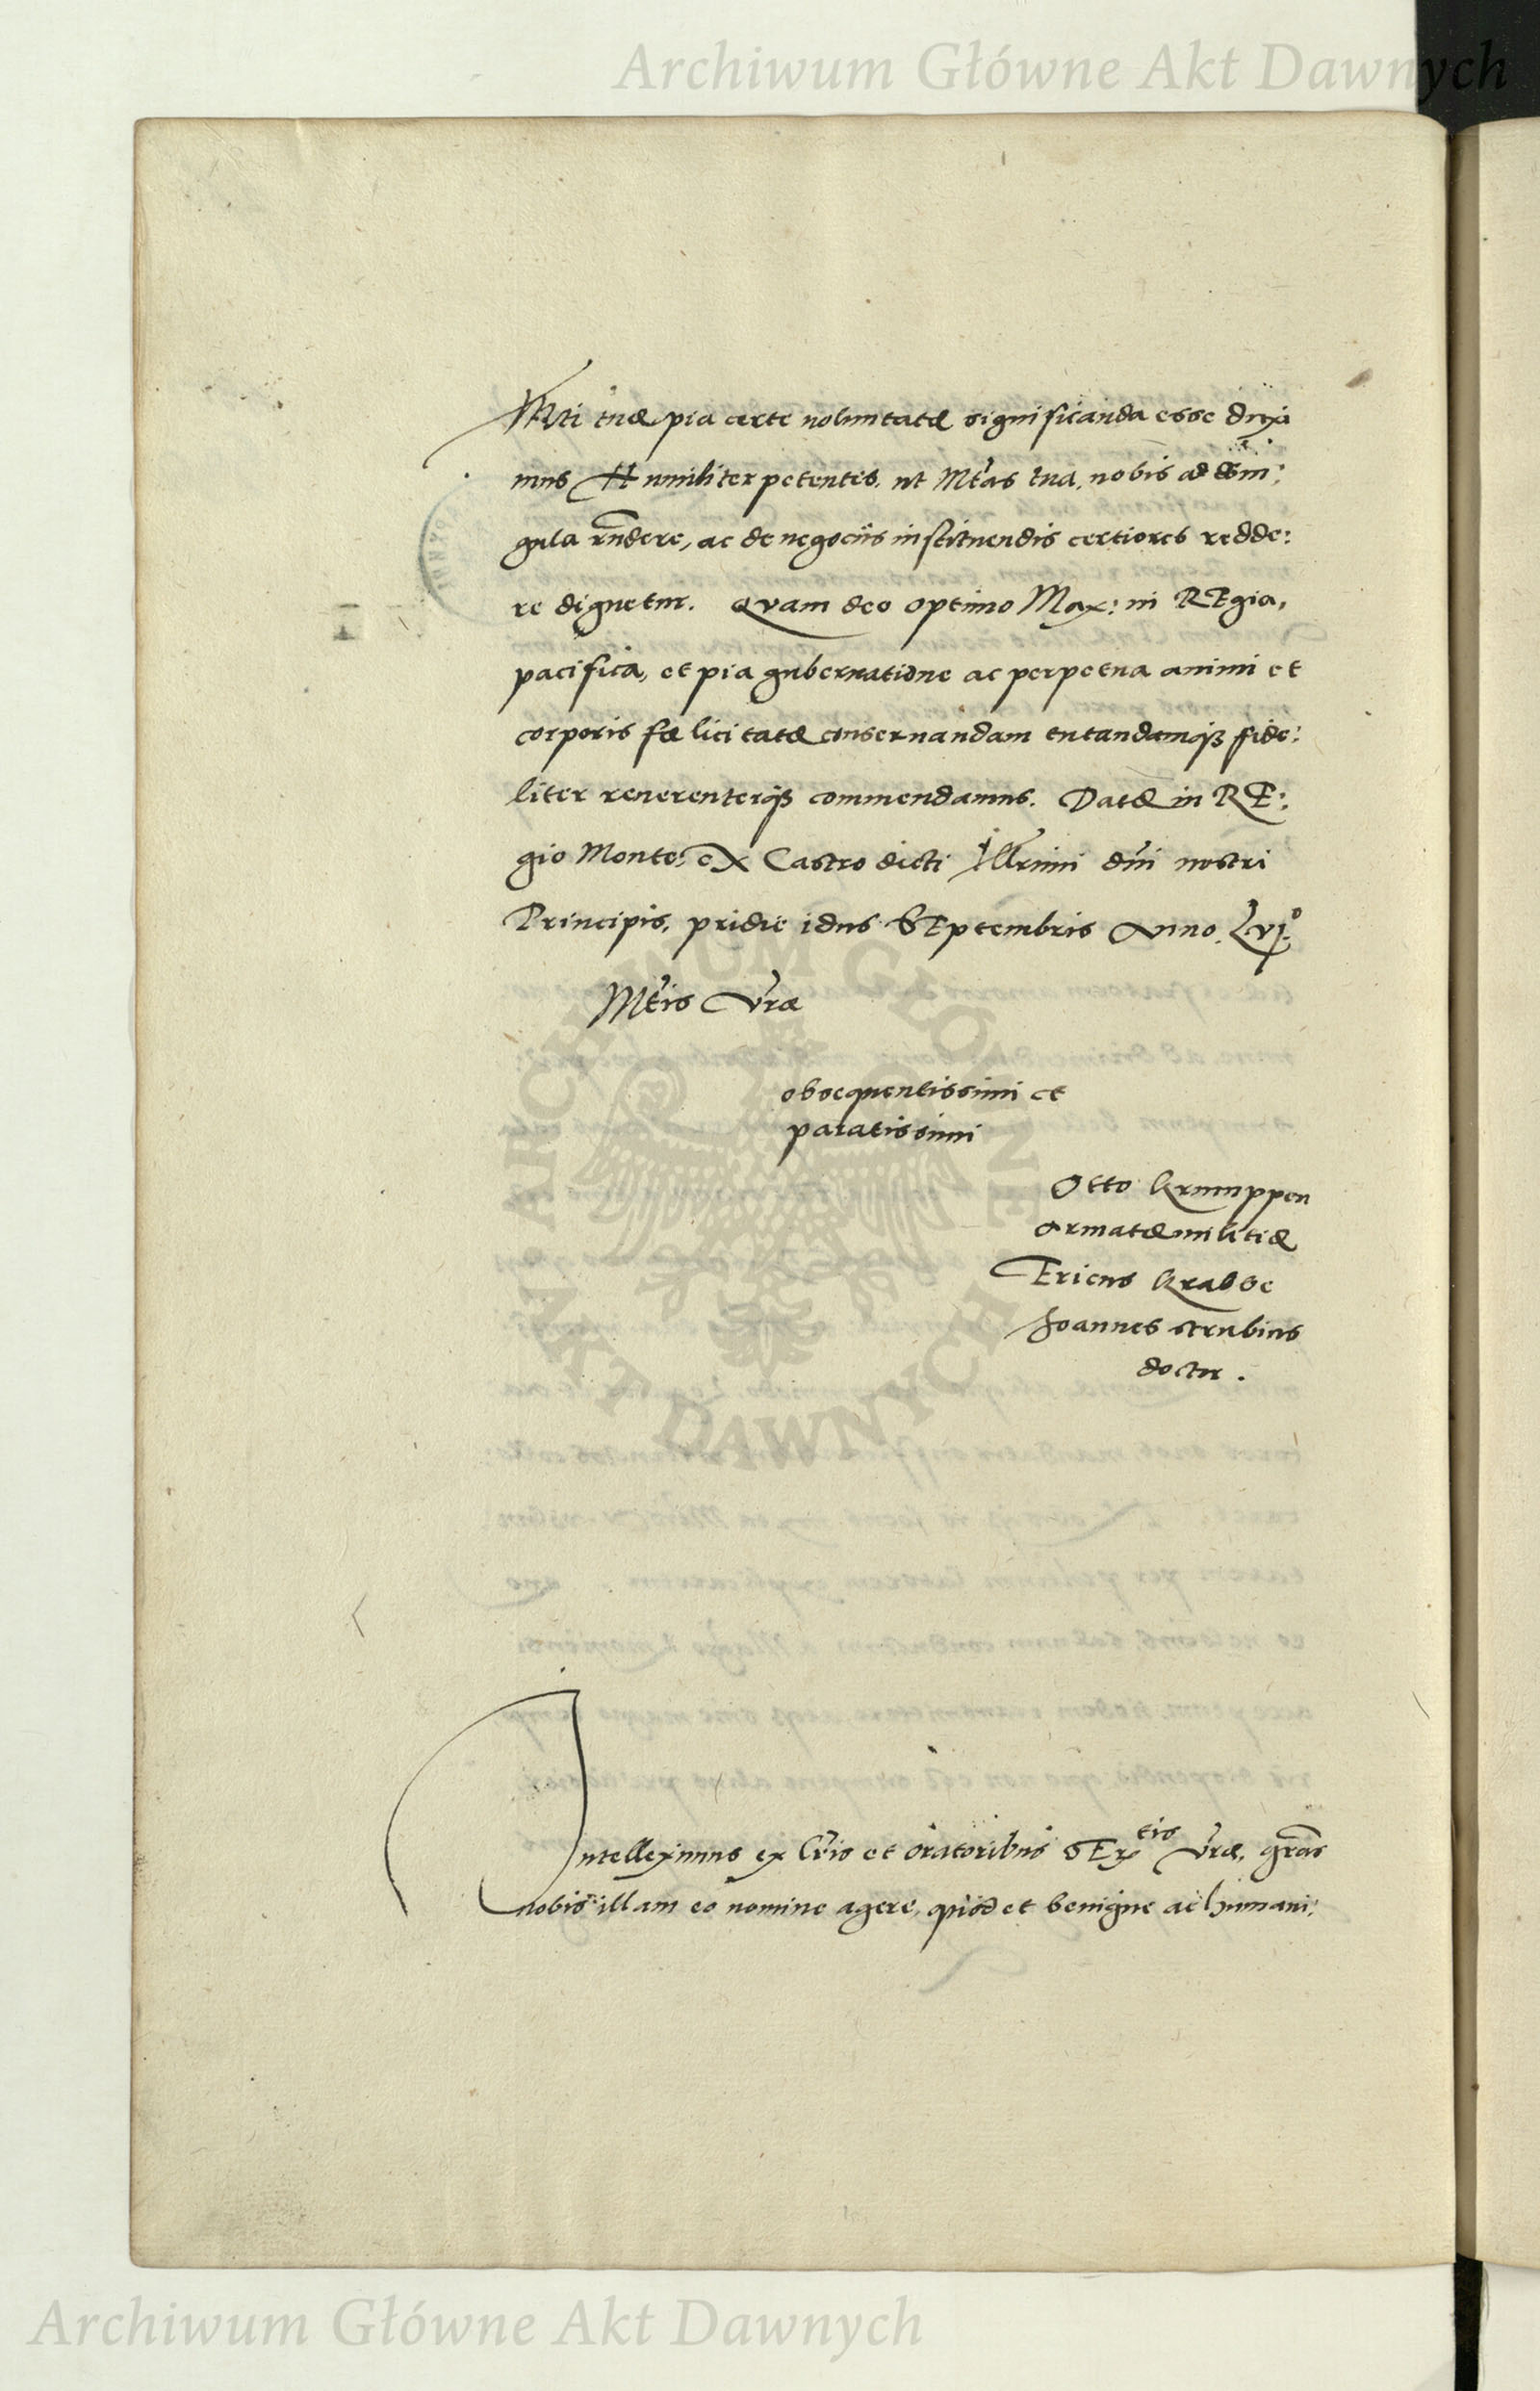 Archiwum Główne Akt Dawnych
Mti tuæ pia certe voluntatæ significanda esse duxi
mus Humiliter petentes, ut Mtas tua, nobis ad sin:
gula rndere, ac de negociis instituendis certiores redde:
re dignetur. Quam deo optimo Max: in REgia,
pacifica, et pia gubernatione ac perpetua animi et
corporis fælicitatæ conservandam tutandamqȝ fide:
liter reverenterqȝ commendamus. Datæ in RE:
gio Monte, ex Castro dicti Illrimi dni nostri
Principis, pridie idus SEptembris Anno. Lvjº
Mtis Vræ
obsequentissimi et
paratissimi
Otto Krumppen
armatæ militiæ
Ericus Krabbe
Joannes strubius
doctor.
Intelleximus ex lris et oratoribus SErtis Vræ, gras
nobis illam eo nomine agere, quod et benigne ac humani:
ARCHIWUM GŁÓWNE AKT DAWNYCH
Archiwum Główne Akt Dawnych